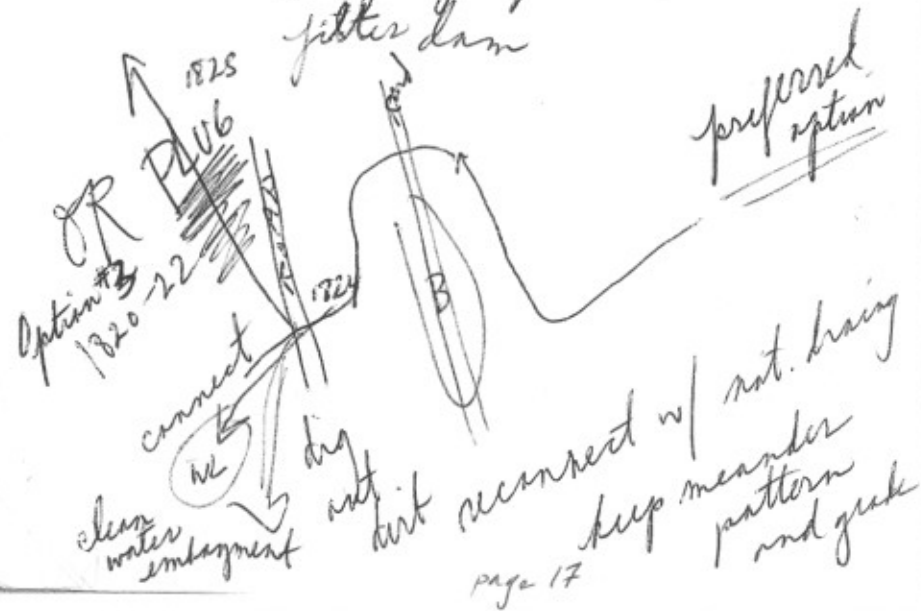 filter dam
1825
PLUG
OR
Option #3
1820-22
preferred
option
B
connect
WL
clean
water
embayment
dig
out
dirt reconnect w/ nat.
keep meander
pattern
and grade
page 17